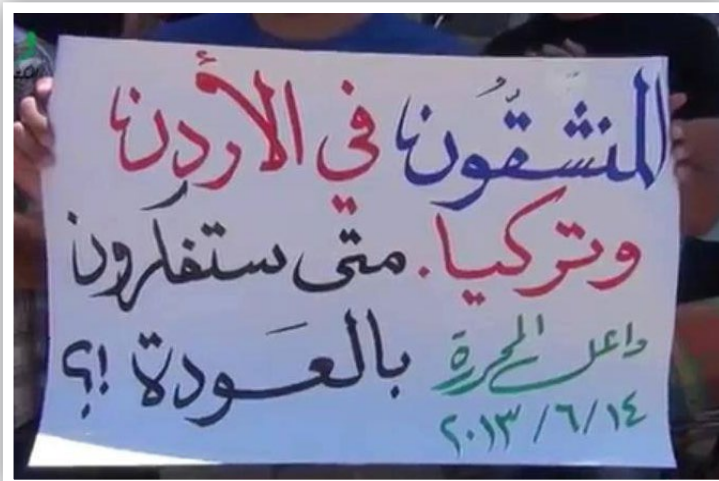 المنشقّون في الأردن
وتركيا. متى ستفكرون
بالعَودة !؟
داعل المحررة
٢٠١٣/٦/١٤